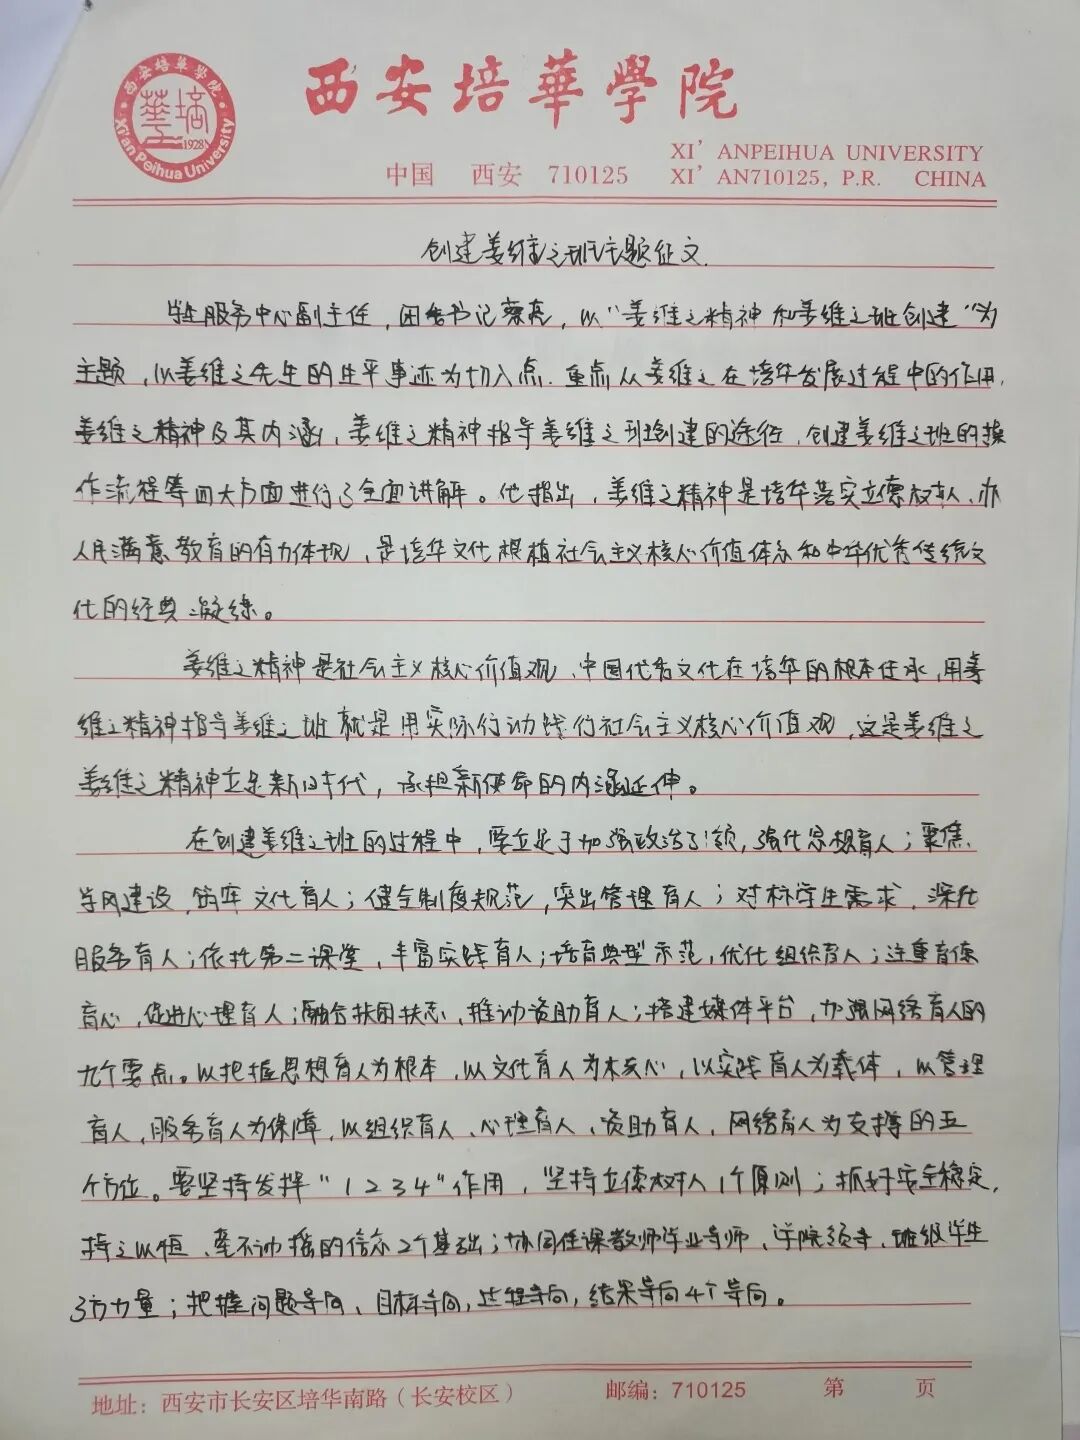 西安培華學院
西安培華學院
Xi'an Peihua University
1928
中国 西安 710125
XI' ANPEIHUA UNIVERSITY
XI' AN710125, P.R. CHINA
创建姜维之班主题征文.
学生服务中心副主任，团委书记蔡亮，以“姜维之精神和姜维之班创建”为
主题，以姜维之先生的生平事迹为切入点.重点从姜维之在培华发展过程中的作用、
姜维之精神及其内涵、姜维之精神指导姜维之班创建的途径、创建姜维之班的操
作流程等四大方面进行了全面讲解。他指出，姜维之精神是培华落实立德树人、办
人民满意教育的有力体现，是培华文化根植社会主义核心价值体系和中华优秀传统文
化的经典凝练。
姜维之精神是社会主义核心价值观、中国优秀文化在培华的根本任承，用姜
维之精神指导姜维之班就是用实际行动践行社会主义核心价值观，这是姜维之
姜维之精神立足新时代，承担新使命的内涵延伸。
在创建姜维之班的过程中，要立足于加强政治引领，强化思想育人；聚焦
学风建设，筑牢文化育人；健全制度规范，突出管理育人；对标学生需求，深化
服务育人；依托第二课堂，丰富实践育人；培育典型示范，优化组织育人；注重育德
育心，促进心理育人；融合扶困扶志，推动资助育人；搭建媒体平台，加强网络育人的
九个要点。以把握思想育人为根本，以文化育人为核心，以实践育人为载体，以管理
育人，服务育人为保障，以组织育人、心理育人、资助育人，网络育人为支撑的五
个方位。要坚持发挥“1234”作用，坚持立德树人1个原则；抓好安全稳定，
持之以恒、毫不动摇的信念2个基础；协同任课教师毕业导师、学院领导、班级学生
3方力量；把握问题导向、目标导向，过程导向，结果导向4个导向。
地址：西安市长安区培华南路（长安校区） 邮编：710125 第 页